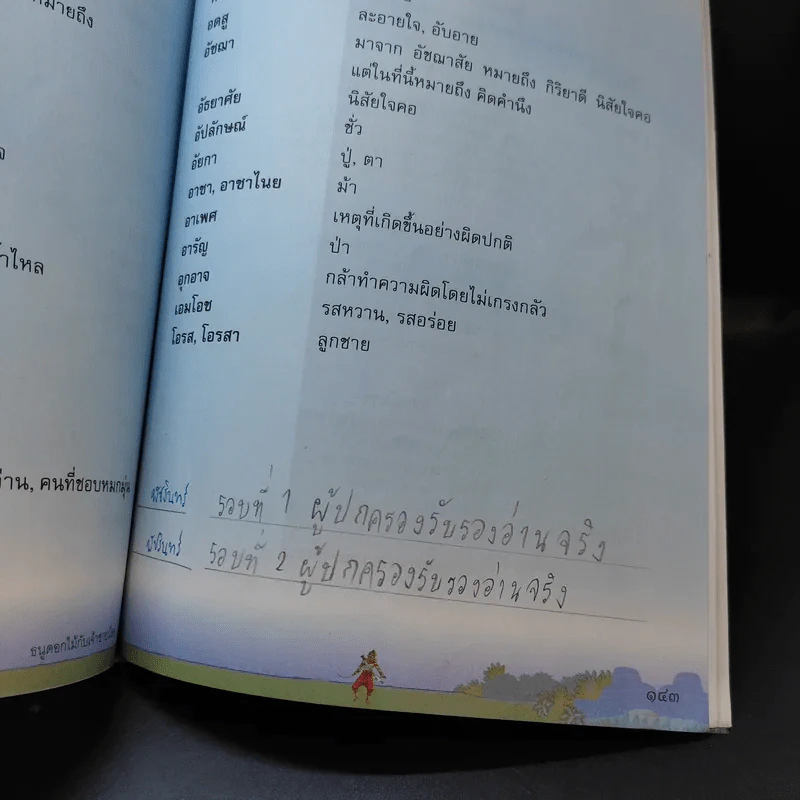 หมายถึง
ำไหล
คนที่ชอบหมกมุ่น
อดสู ละอายใจ, อับอาย
อัชฌา มาจาก อัชฌาสัย หมายถึง กิริยาดี นิสัยใจคอ
แต่ในที่นี้หมายถึง คิดคำนึง
อัธยาศัย นิสัยใจคอ
อัปลักษณ์ ชั่ว
อัยกา ปู่, ตา
อาชา, อาชาไนย ม้า
อาเพศ เหตุที่เกิดขึ้นอย่างผิดปกติ
อารัญ ป่า
อุกอาจ กล้าทำความผิดโดยไม่เกรงกลัว
เอมโอช รสหวาน, รสอร่อย
โอรส, โอรสา ลูกชาย
รอบที่ 1 ผู้ปกครองรับรองอ่านจริง
รอบที่ 2 ผู้ปกครองรับรองอ่านจริง
ธนูดอกไม้กับเจ้าชาย
๑๔๓